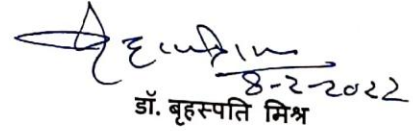 8-2-2022
डॉ. बृहस्पति मिश्र